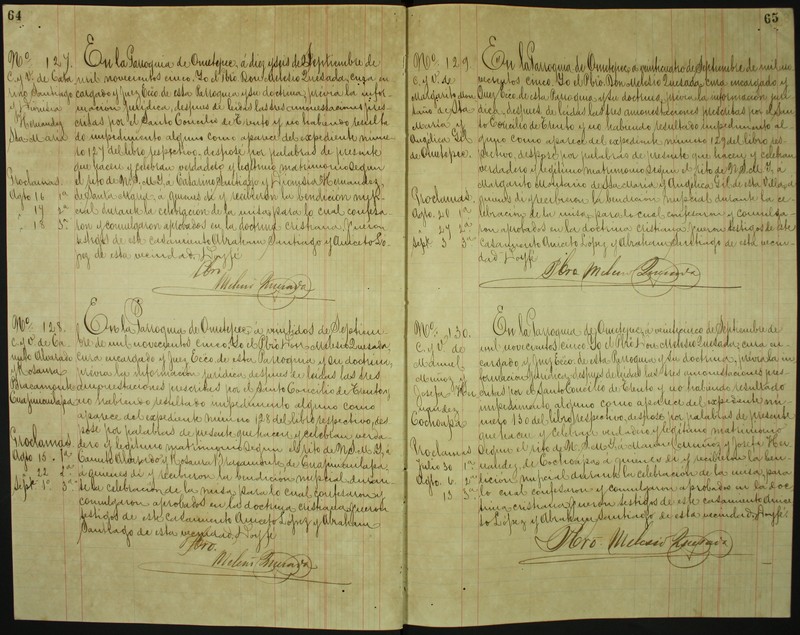 64
No. 127.
C. y V. de Cata
rino Santiago
y Dionisia
Hernandez
Sta Maria
Proclamas.
Agto 16 1a
" 17 2a
" 18 3a
En la Parroquia de Ometepec, á diez y seis de Septiembre de
mil novecientos cinco. Yo el Pbro. Don Melesio Quesada, cura en
cargado y Juez Ecco. de esta Parroquia y su doctrina, previa la infor
macion juridica, despues de leidas las tres amonestaciones pres
critas por el Santo Concilio de Trento y no habiendo resulta
do impedimento alguno como aparece del expediente núme
ro 127 del libro respectivo, despose por palabras de presente
que hacen y celebran verdadero y legitimo matrimonio segun
el rito de N. S. M. Y. á Catarino Santiago y Dionisia Hernandez,
de Santa Maria, á quienes di y recibieron la bendicion nup
cial durante la celebracion de la misa, para lo cual confesa
ron y comulgaron aprobados en la doctrina cristiana. Fueron
testigos de este casamiento Abraham Santiago y Aniceto Lo
pez de esta vecindad. Doy fé
Pbro.
Melesio Quesada
No. 128.
C. y V. de Ca
milo Alvarado
y Rosaura
Bracamonte
Cuajinicuilapa
Proclamas.
Agto 15. 1a
" 22 2a
Sept. 1o 3a
En la Parroquia de Ometepec, á veintidos de Septiem
bre de mil novecientos cinco. Yo el Pbro. Don Melesio Quesada,
cura encargado y Juez Ecco. de esta Parroquia y su doctrina,
previa la informacion juridica despues de leidas las tres
amonestaciones prescritas por el Santo Concilio de Trento, y
no habiendo resultado impedimento alguno como
aparece del expediente número 128 del libro respectivo, des
pose por palabras de presente que hacen y celebran verda
dero y legitimo matrimonio segun el rito de N. S. M. Y. á
Camilo Alvarado y Rosaura Bracamonte de Cuajinicuilapa
á quienes di y recibieron la bendicion nupcial duran
te la celebracion de la misa para lo cual confesaron y
comulgaron aprobados en la doctrina cristiana. Fueron
testigos de este casamiento Aniceto Lopez y Abraham
Santiago de esta vecindad. Doy fé
Pbro.
Melesio Quesada
65
No. 129.
C. y V. de
Margarito Mon
taño de Sta
Maria y
Angelica Gil
de Ometepec.
Proclamas.
Agto. 20 1a
" 27 2a
Sept. 3 3a
En la Parroquia de Ometepec á veinticuatro de Septiembre de mil no
vecientos cinco. Yo el Pbro. Don Melesio Quesada, cura encargado y
Juez Ecco. de esta Parroquia y su doctrina, previa la informacion juri
dica, despues de leidas las tres amonestaciones prescritas por el San
to Concilio de Trento y no habiendo resultado impedimento al
guno como aparece del expediente número 129 del libro res
pectivo, despose por palabras de presente que hacen y celebran
verdadero y legitimo matrimonio segun el rito de N. S. M. Y. á
Margarito Montaño de Sta Maria y Angelica Gil de esta Villa, á
quienes di y recibieron la bendicion nupcial durante la ce
lebracion de la misa, para lo cual confesaron y comulga
ron aprobados en la doctrina cristiana. Fueron testigos de este
casamiento Aniceto Lopez y Abraham Santiago de esta vecin
dad. Doy fé
Pbro. Melesio Quesada
No. 130.
C. y V. de
Manuel
Muñoz y
Josefa Her
nandez
Cochoapa
Proclamas
Julio 30 1a
Agto. 6 2a
" 13 3a
En la Parroquia de Ometepec, á veinticinco de Septiembre de
mil novecientos cinco. Yo el Pbro. Don Melesio Quesada, cura en
cargado y Juez Ecco. de esta Parroquia y su doctrina, previa la in
formacion juridica, despues de leidas las tres amonestaciones pres
critas por el Santo Concilio de Trento y no habiendo resultado
impedimento alguno como aparece del expediente nú
mero 130 del libro respectivo, despose por palabras de presente
que hacen y celebran verdadero y legitimo matrimonio
segun el rito de N. S. M. Y. á Manuel Muñoz y Josefa Her
nandez, de Cochoapa á quienes di y recibieron la ben
dicion nupcial durante la celebracion de la misa, para
lo cual confesaron y comulgaron aprobados en la doc
trina cristiana. Fueron testigos de este casamiento Anice
to Lopez y Abraham Santiago de esta vecindad. Doy fé
Pbro. Melesio Quesada